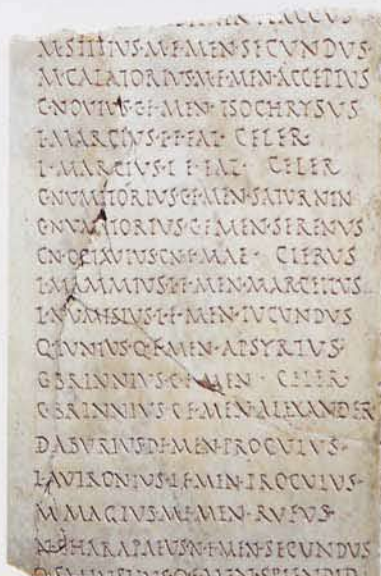 FLACCUS
M·ESTITIVS·M·F·MEN·SECUNDUS·
M·CALATORIUS·M·F·MEN·ACCEPTUS
C·NOVIUS·C·F·MEN·ISOCHRYSVS
L·MARCIVS·L·F·FAL· CELER·
L·MARCIVS·L·F·FAL· CELER
C·NUMITORIVS·C·F·MEN·SATURNIN
C·NUMITORIUS·C·F·MEN·SERENUS
CN·F·MAE· CLERUS
L·MAMMIUS·L·F·MEN·MARCELLUS·
L·F·MEN·IUCUNDUS
Q·IUNIUS·Q·F·MEN·APSYRTUS·
C·BRINNIVS·C·F·MEN· CELER·
C·BRINNIVS·C·F·MEN·ALEXANDER
D·ABURIUS·D·F·MEN·PROCULUS·
L·AVIRONIUS·L·F·MEN·PROCULUS·
M·MAGIUS·M·F·MEN·RUFUS·
N·F·MEN·SECUNDUS
Q·F·MEN